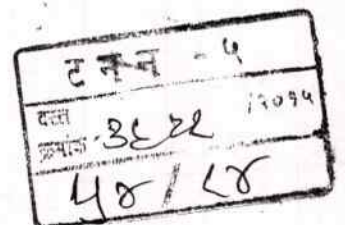 ट न न - ५
दस्त क्रमांक ३६२२ /२०१५
५४ / ८४